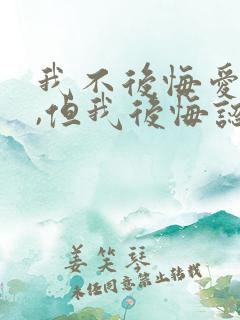 我不後悔愛
,但我後悔認
姜笑琴
未经同意禁止转载